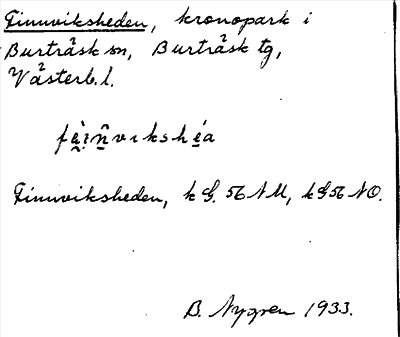 Finnviksheden, kronopark i
Burträsk sn, Burträsk tg,
Västerb. l.
Finnviksheden, k G. 56 NU, k G 56 NO.
B. Nygren 1933.